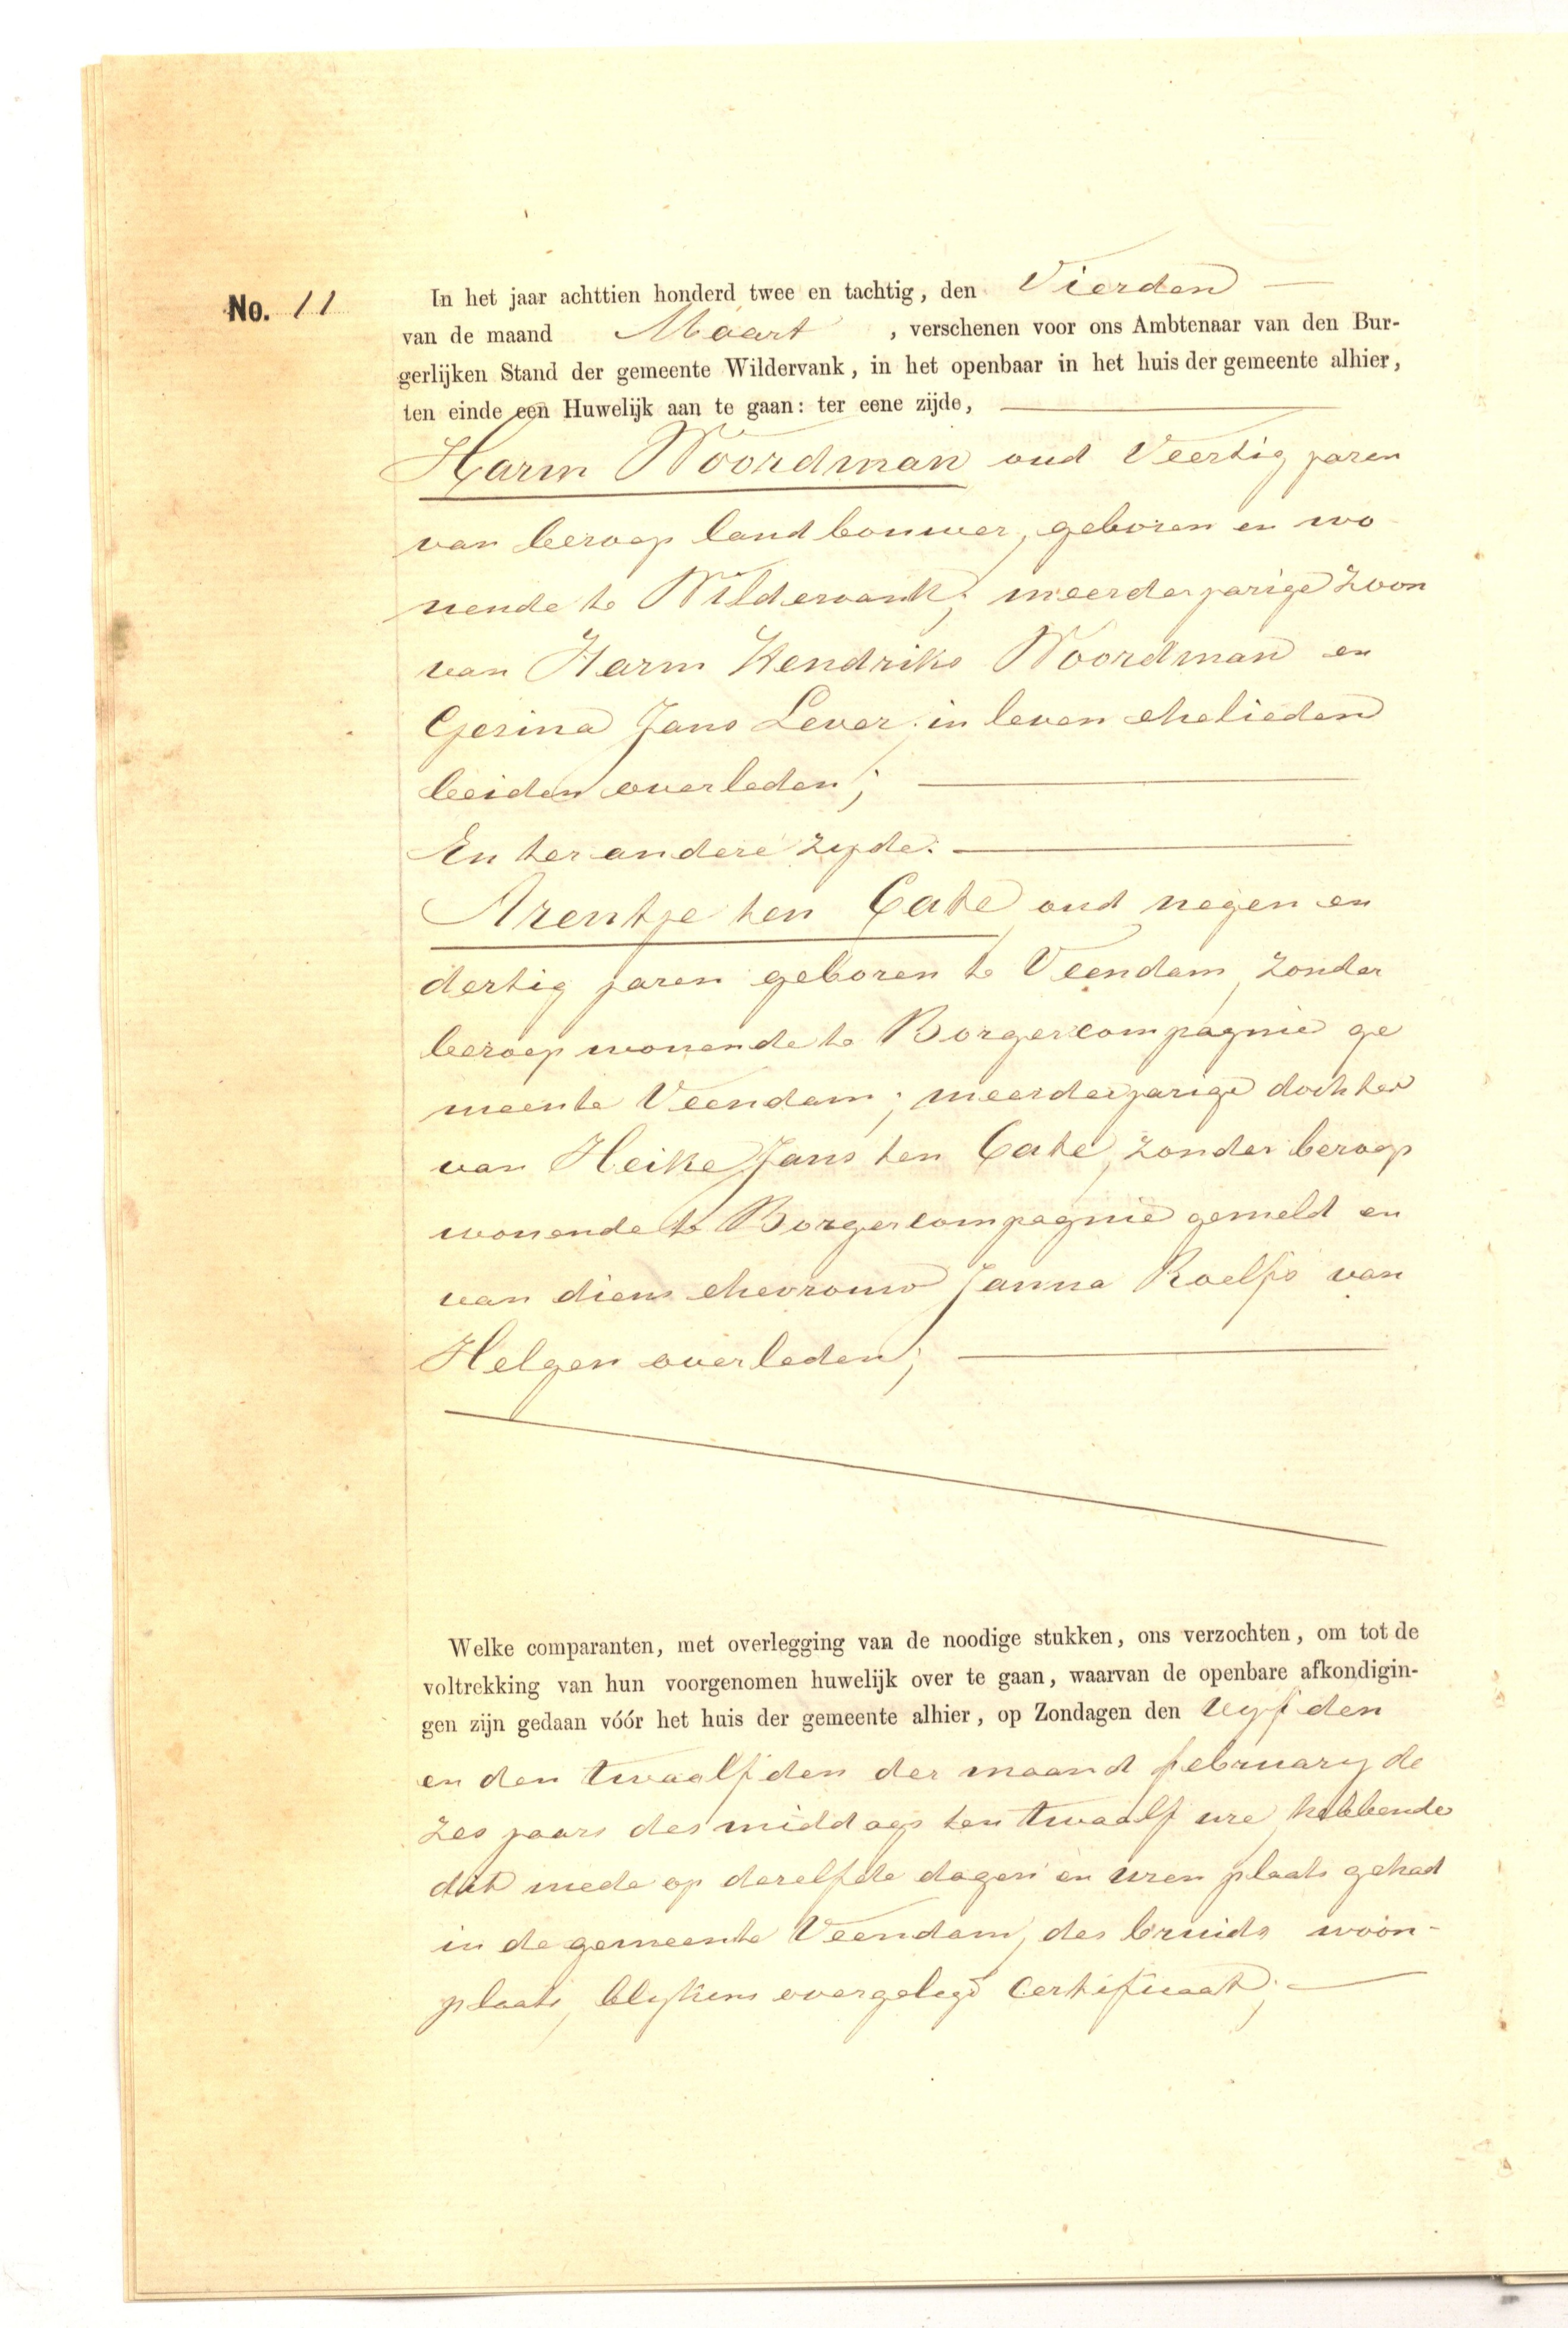 No. 11
In het jaar achttien honderd twee en tachtig, den Vierden
van de maand Maart, verschenen voor ons Ambtenaar van den Bur-
gerlijken Stand der gemeente Wildervank, in het openbaar in het huis der gemeente alhier,
ten einde een Huwelijk aan te gaan: ter eene zijde,
Harm Noordman oud Veertig jaren
van beroep landbouwer, geboren en wo
nende te Wildervank; meerderjarige zoon
van Harm Hendriks Noordman en
Gesina Jans Lever in leven ehelieden
beiden overleden;
En ter andere zijde.
Arentje ten Cate oud negen en
dertig jaren geboren te Veendam, zonder
beroep wonende te Borgercompagnie ge
meente Veendam; meerderjarige dochter
van Heike Jans ten Cate, zonder beroep
wonende te Borgercompagnie gemeld en
van diens ehevrouw Janna Roelfs van
Helgen overleden;
Welke comparanten, met overlegging van de noodige stukken, ons verzochten, om tot de
voltrekking van hun voorgenomen huwelijk over te gaan, waarvan de openbare afkondigin-
gen zijn gedaan vóór het huis der gemeente alhier, op Zondagen den vyfden
en den twaalfden der maand february de
zes jaars des middags ten twaalf ure, hebbende
dit mede op dezelfde dagen en uren plaats gehad
in de gemeente Veendam, des bruids woon-
plaats, blijkens overgelegd Certificaat;